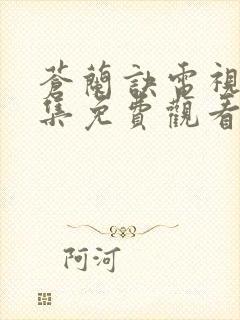 蒼蘭訣電視
集免費觀看
阿河